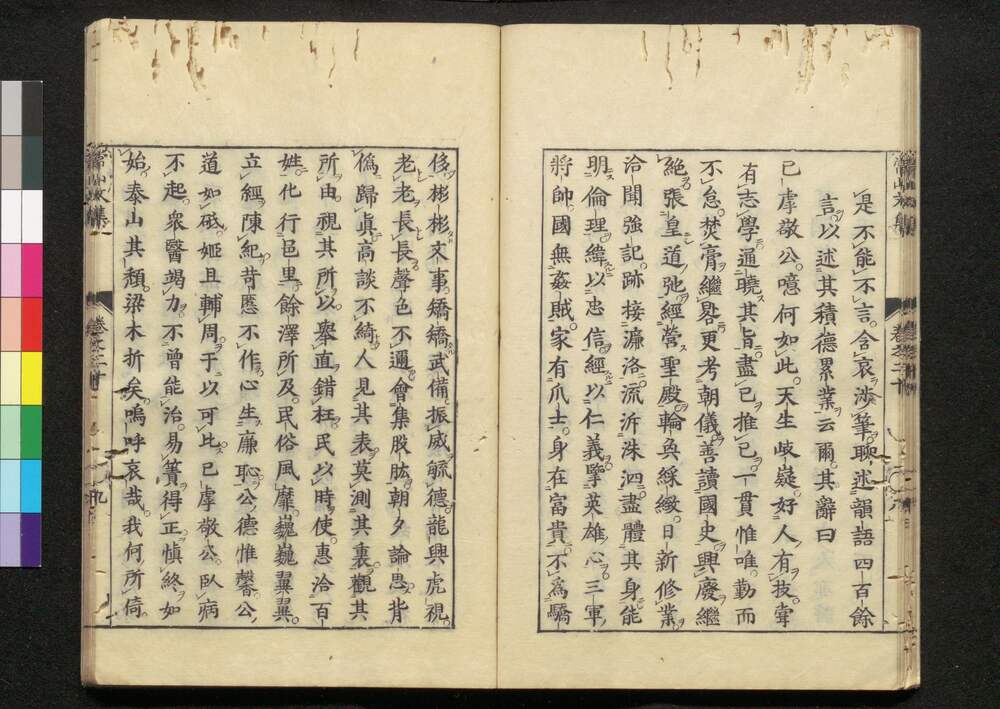 是不能不言含哀涉筆聊述韻語四百餘
言以述其積德累業云爾其辭曰
已虖敬公噫何如此天生岐嶷好人有技聿
有志學通曉其旨盡已推已一貫惟唯勤而
不怠焚膏繼晷更考朝儀善讀國史興廢繼
絶張皇道弛經營聖殿輪奐綵緻日新修業
洽聞強記跡接濂洛流泝洙泗盡體其身能
明倫理緯以忠信經以仁義擥英雄心三軍
將帥國無姦賊家有爪士身在富貴不爲驕
侈彬彬文事矯矯武備振威毓德龍興虎視
老老長長聲色不邇會集股肱朝夕論思背
僞歸眞高談不綺人見其表莫測其裏觀其
所由視其所以舉直錯枉民以時使惠洽百
姓化行邑里餘澤所及民俗風靡巍巍翼翼
立經陳紀苛慝不作心生廉恥公德惟馨公
道如砥姬且輔周于以可此已虖敬公臥病
不起衆醫竭力不曾能治易簀得正愼終如
始泰山其頽梁木折矣嗚呼哀哉我何所倚